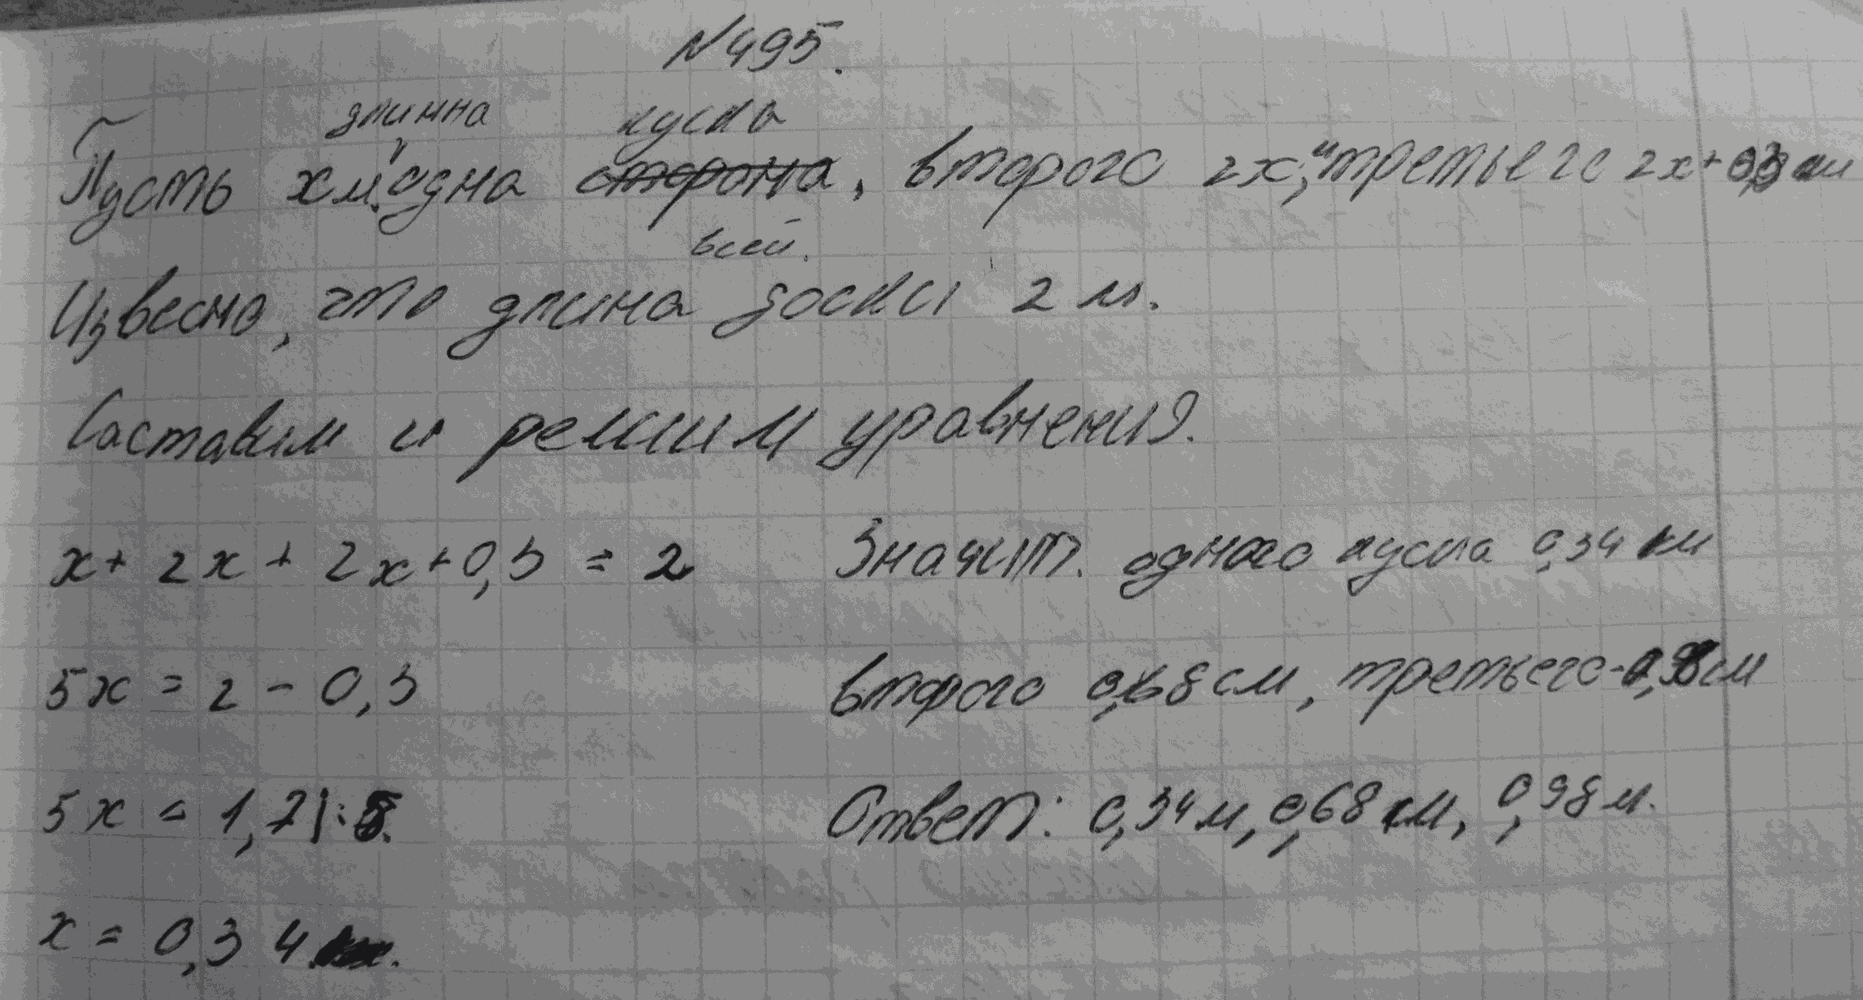 №495.
длинна куска
Пусть х м. одна сторона, второго 2х, третьего 2х+0,3 м
всей.
Извесно, что длина доски 2 м.
Составим и решим уравнения.
х+ 2х + 2х+0,3 = 2
Значит. одного куска 0,34 м
5х = 2 - 0,3
второго 0,68 см, третьего-0,98см
5х = 1,7|:5.
Ответ: 0,34м, 0,68 м, 0,98м.
х = 0,34